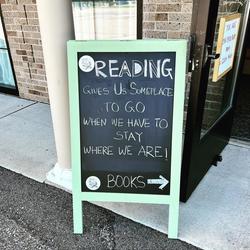 READING
GIVES US SOMEPLACE
TO GO
WHEN WE HAVE TO
STAY
WHERE WE ARE!
BOOKS